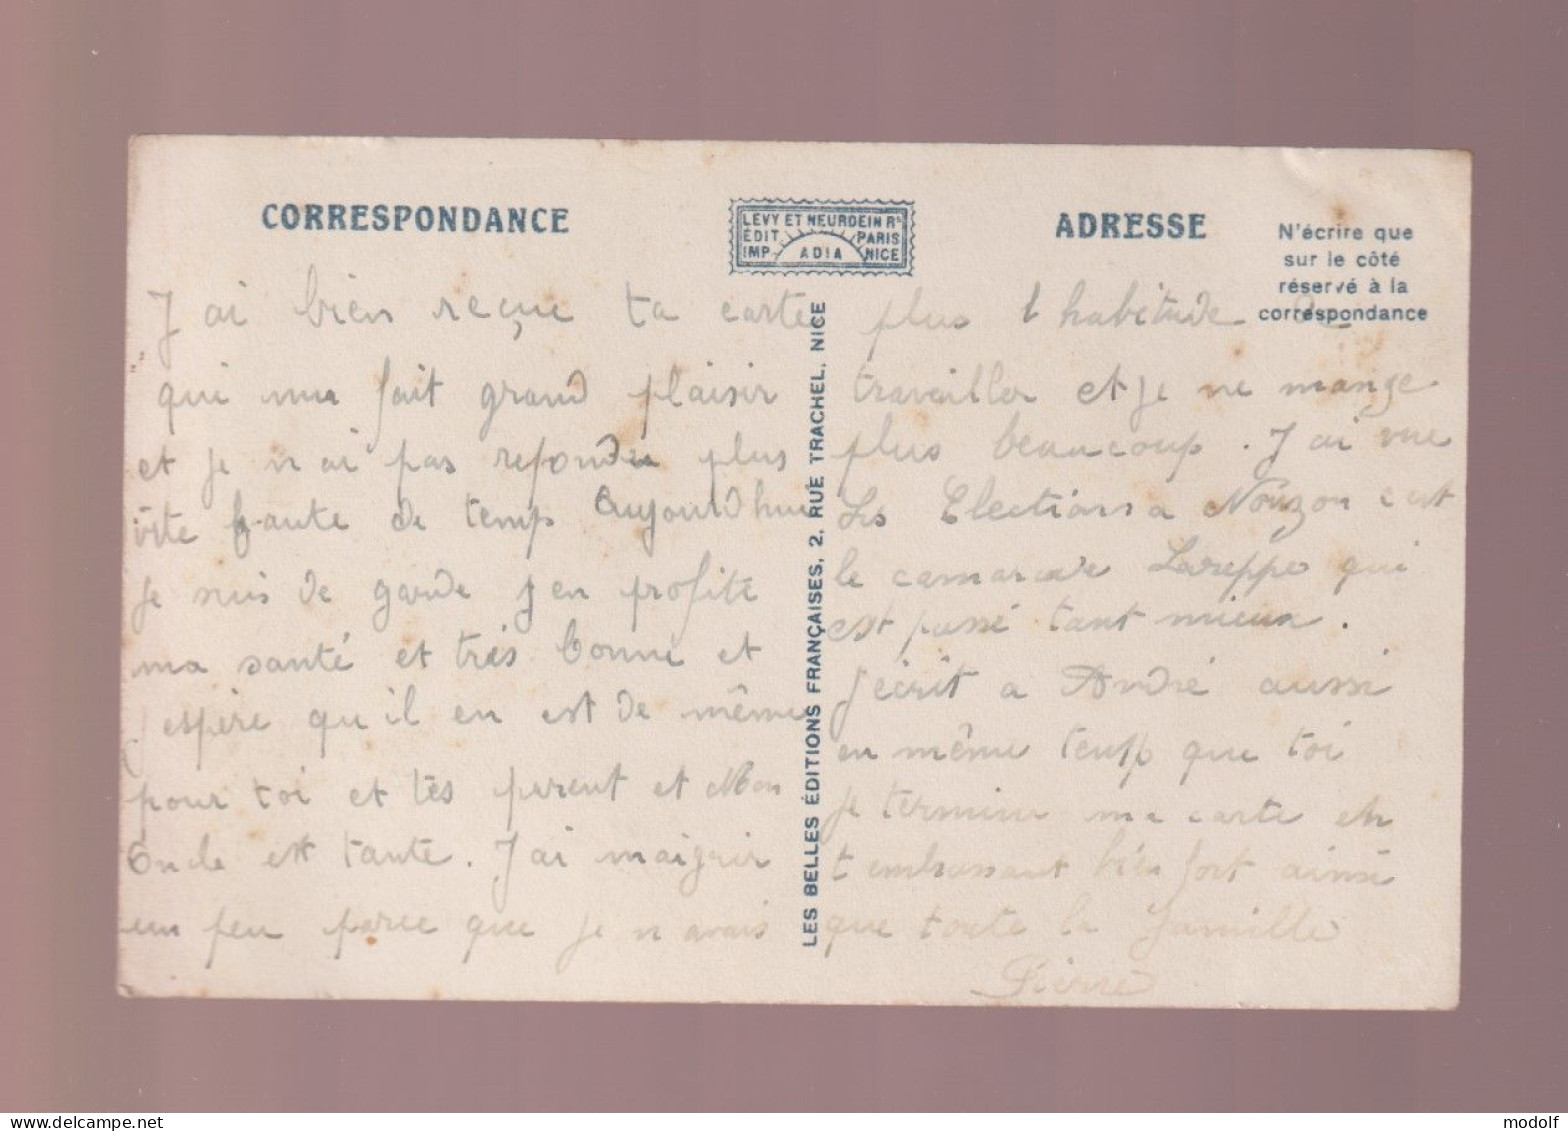 CORRESPONDANCE
LEVY ET NEURDEIN Rs
EDIT PARIS
IMP. ADIA NICE
ADRESSE
N'écrire que
sur le côté
réservé à la
correspondance
J ai bien reçue ta carte
qui ma fait grand plaisir
et je n ai pas repondu plus
vite faute de temp aujourdhui
je suis de garde j en profite
ma santé et très bonne et
j espère qu il en est de même
pour toi et tes parent et Mon
Oncle est tante. J ai maigrir
un peu parce que je n avais
LES BELLES ÉDITIONS FRANÇAISES, 2, RUE TRACHEL, NICE
plus l habitude de
travailler et je ne mange
plus beaucoup. J ai vue
Les Elections a Nouzon c est
le camarade Lareppe qui
est passé tant mieux.
j écrit a André aussi
en même temp que toi
je termine ma carte en
t embrassant bien fort ainsi
que toute la famille
Pierre
modolf